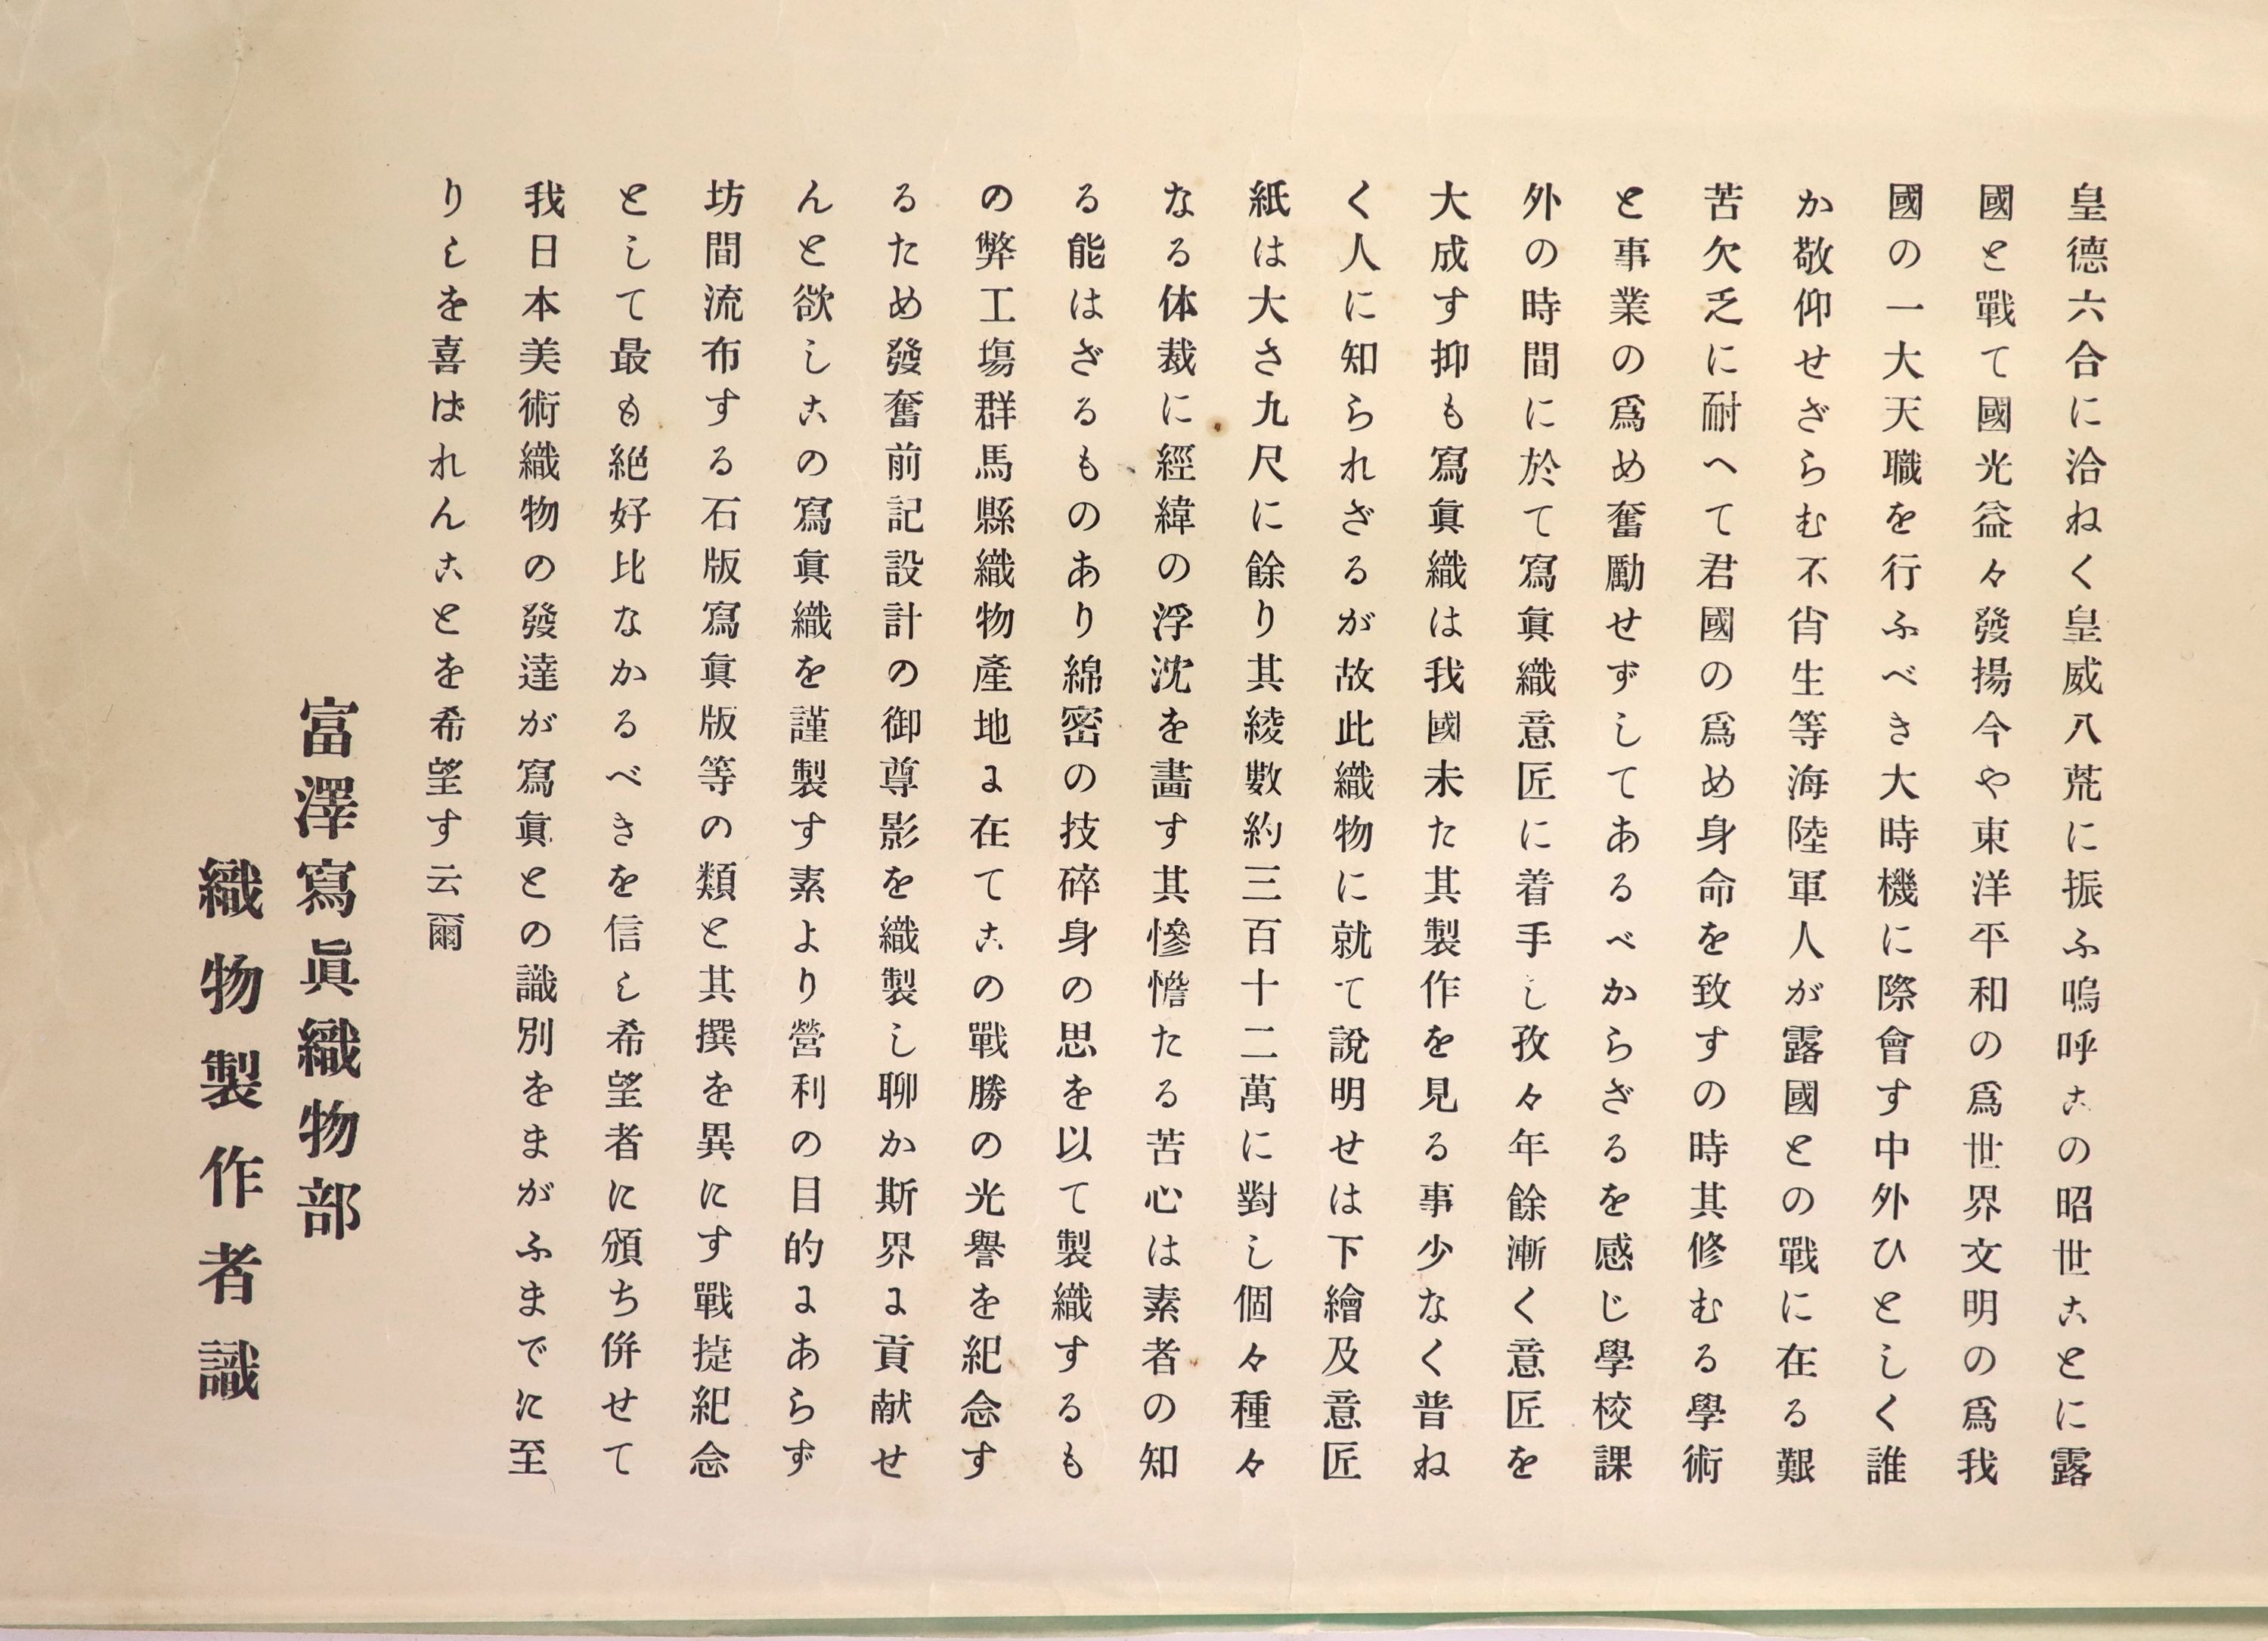 皇德六合に洽ねく皇威八荒に振ふ嗚呼この昭世ことに露
國と戰て國光益々發揚今や東洋平和の爲世界文明の爲我
國の一大天職を行ふべき大時機に際會す中外ひとしく誰
か敬仰せざらむ不肖生等海陸軍人が露國との戰に在る艱
苦欠乏に耐へて君國の爲め身命を致すの時其修むる學術
と事業の爲め奮勵せずしてあるべからざるを感じ學校課
外の時間に於て寫眞織意匠に着手し孜々年餘漸く意匠を
大成す抑も寫眞織は我國未た其製作を見る事少なく普ね
く人に知られざるが故此織物に就て說明せは下繪及意匠
紙は大さ九尺に餘り其綾數約三百十二萬に對し個々種々
なる体裁に經緯の浮沈を畵す其慘憺たる苦心は素者の知
る能はざるものあり綿密の技碎身の思を以て製織するも
の弊工塲群馬縣織物產地に在てこの戰勝の光譽を紀念す
るため發奮前記設計の御尊影を織製し聊か斯界に貢献せ
んと欲しこの寫眞織を謹製す素より營利の目的にあらず
坊間流布する石版寫眞版等の類と其撰を異にす戰捷紀念
として最も絕好比なかるべきを信し希望者に頒ち倂せて
我日本美術織物の發達が寫眞との識別をまがふまでに至
りしを喜ばれんことを希望す云爾
富澤寫眞織物部
織物製作者識